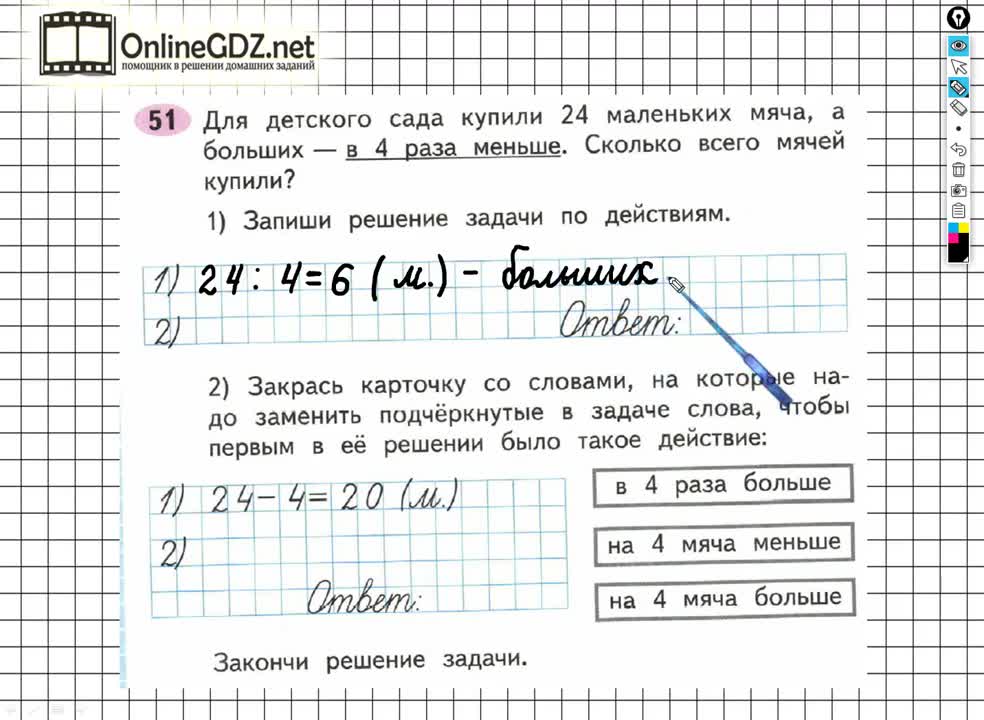 OnlineGDZ.net
помощник в решении домашних заданий
51 Для детского сада купили 24 маленьких мяча, а
больших — в 4 раза меньше. Сколько всего мячей
купили?
1) Запиши решение задачи по действиям.
1) 24 : 4 = 6 ( м. ) - больших
2) Ответ:
2) Закрась карточку со словами, на которые на-
до заменить подчёркнутые в задаче слова, чтобы
первым в её решении было такое действие:
1) 24 - 4 = 20 (м.)
2)
Ответ:
в 4 раза больше
на 4 мяча меньше
на 4 мяча больше
Закончи решение задачи.